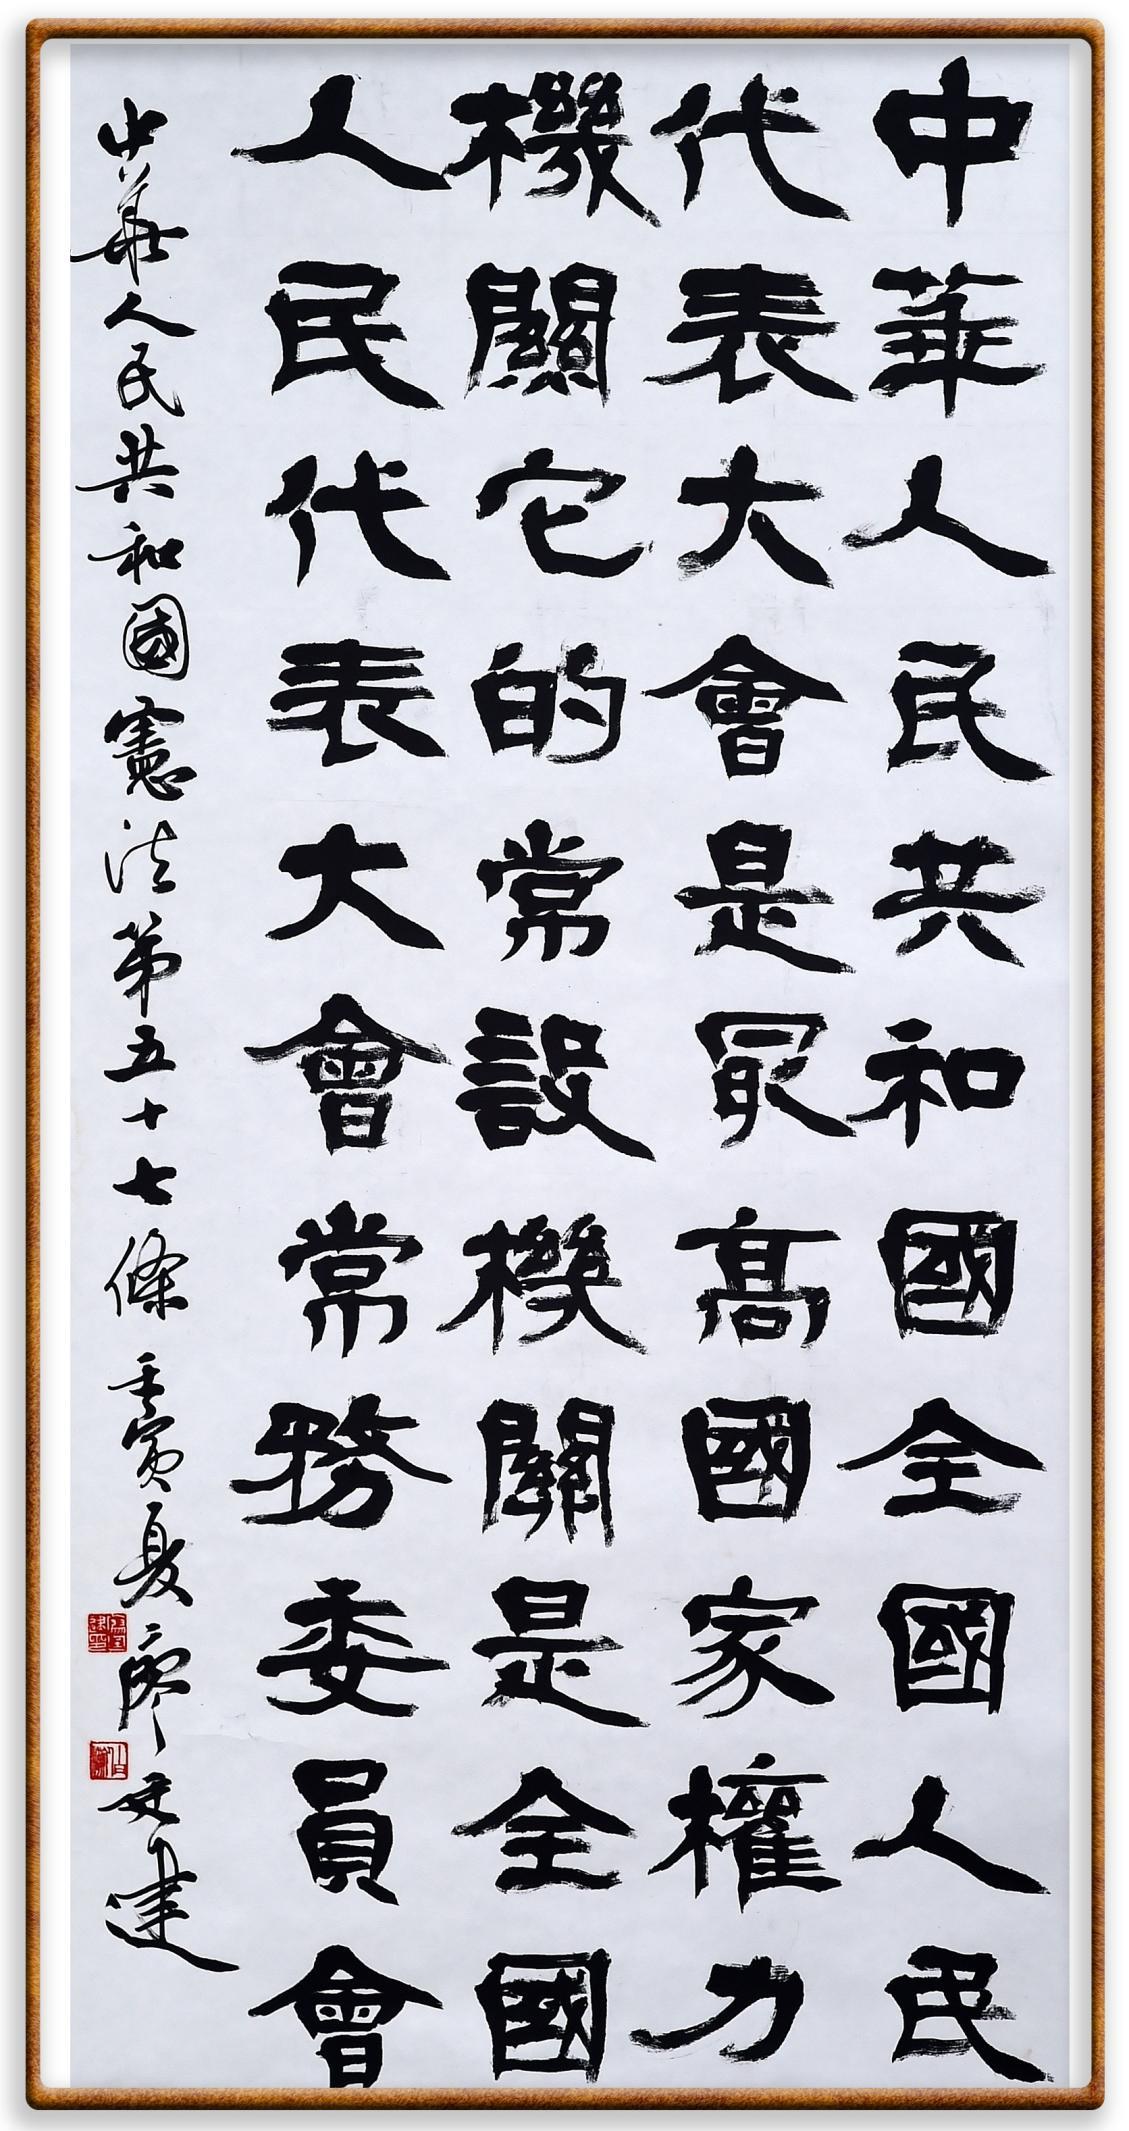 中華人民共和國全國人民
代表大會是冣高國家權力
機關它的常設機關是全國
人民代表大會常務委員會
中華人民共和國憲法第五十七條 壬寅夏廖文建